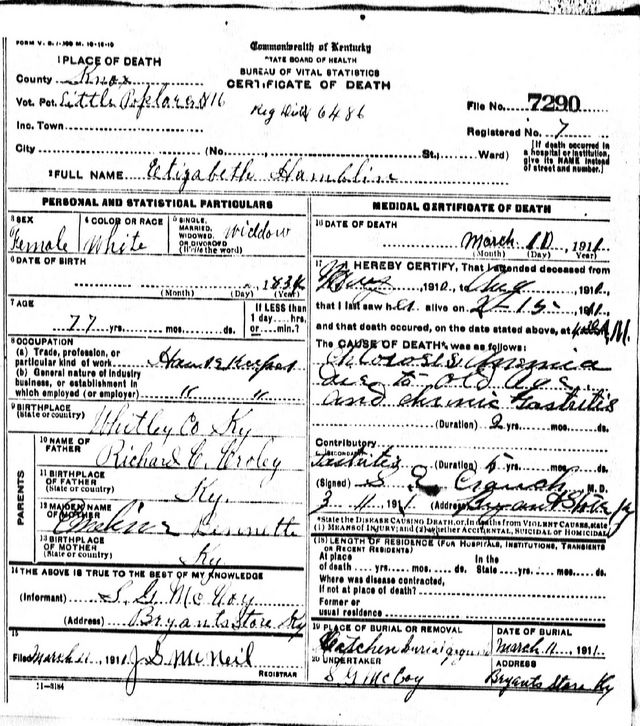 FORM V. S. 1-
Commonwealth of Kentucky
STATE BOARD OF HEALTH
BUREAU OF VITAL STATISTICS
CERTIFICATE OF DEATH
1 PLACE OF DEATH
County Knox
Vot. Pct. Little Poplar
Reg Dist 6486
File No. 7290
Inc. Town
Registered No. 7
City (No. St., Ward)
[If death occurred in a hospital or institution, give its NAME instead of street and number.]
2 FULL NAME Elizabeth Hambline
PERSONAL AND STATISTICAL PARTICULARS
3 SEX Female
4 COLOR OR RACE White
5 SINGLE, MARRIED, WIDOWED, OR DIVORCED (Write the word) Widdow
6 DATE OF BIRTH
(Month) (Day) (Year)
7 AGE 77 yrs. mos. ds.
If LESS than 1 day hrs. or min.?
8 OCCUPATION
(a) Trade, profession, or particular kind of work Housekeeper
(b) General nature of industry business, or establishment in which employed (or employer) " "
9 BIRTHPLACE (State or country) Whitley Co Ky
PARENTS
10 NAME OF FATHER Richard C Croley
11 BIRTHPLACE OF FATHER (State or country) Ky.
12 MAIDEN NAME OF MOTHER
13 BIRTHPLACE OF MOTHER (State or country) Ky
14 THE ABOVE IS TRUE TO THE BEST OF MY KNOWLEDGE
(Informant) S. G. McCoy
(Address) Bryants Store Ky
15
Filed March 11, 1911 J S McNeil REGISTRAR
11-3184
MEDICAL CERTIFICATE OF DEATH
16 DATE OF DEATH
March 10, 1911
(Month) (Day) (Year)
17 I HEREBY CERTIFY, That I attended deceased from
1910, to Aug 1910,
that I last saw her alive on 2-15- 1911,
and that death occured, on the date stated above, at M.
The CAUSE OF DEATH was as follows:
Chlorosis Anemia
due to old age
and chronic Gastritis
(Duration) 2 yrs. mos. ds.
Contributory (SECONDARY)
Gastritis (Duration) 5 yrs. mos. ds.
(Signed) Crouch M. D.
3 11 1911 (Address) Bryants Store Ky
*State the DISEASE CAUSING DEATH, or, in deaths from VIOLENT CAUSES, state (1) MEANS OF INJURY; and (2) whether ACCIDENTAL, SUICIDAL or HOMICIDAL
18 LENGTH OF RESIDENCE (FOR HOSPITALS, INSTITUTIONS, TRANSIENTS OR RECENT RESIDENTS)
At place of death yrs. mos. ds. In the State yrs. mos. ds.
Where was disease contracted, if not at place of death?
Former or usual residence
19 PLACE OF BURIAL OR REMOVAL burial ground
DATE OF BURIAL March 11, 1911
20 UNDERTAKER S G McCoy
ADDRESS Bryants Store Ky